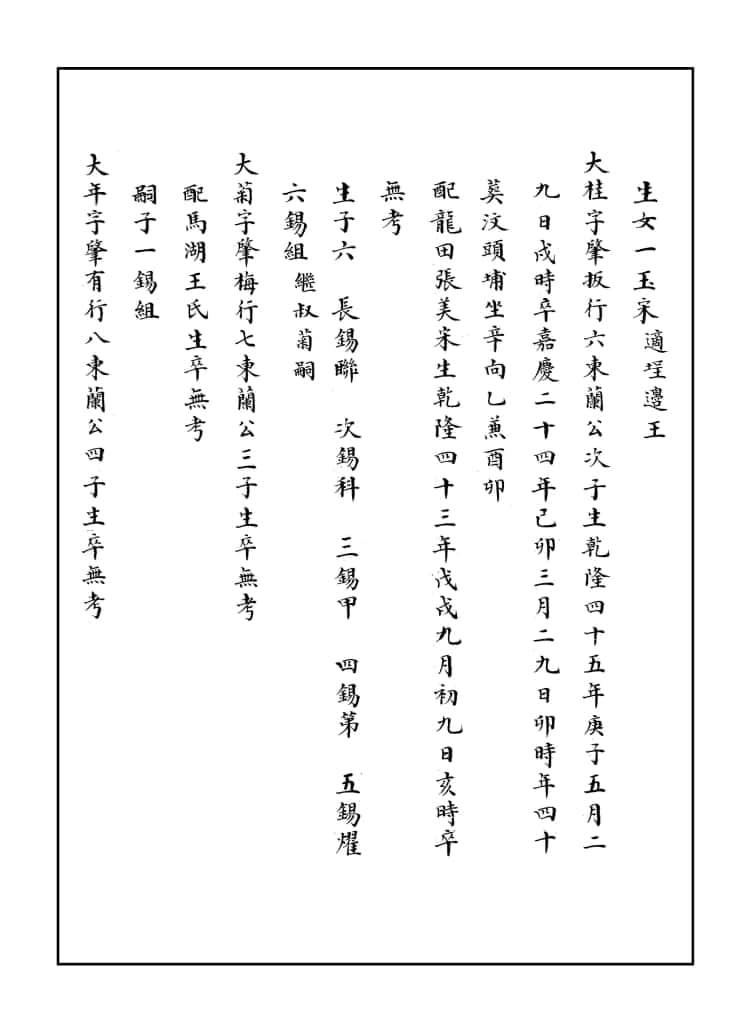 生女一玉宋 適埕邊王
大桂字肇扳行六東蘭公次子生乾隆四十五年庚子五月二
九日戌時卒嘉慶二十四年己卯三月二九日卯時年四十
葬汶頭埔坐辛向乙兼酉卯
配龍田張美宋生乾隆四十三年戊戌九月初九日亥時卒
無考
生子六 長錫聯 次錫科 三錫甲 四錫第 五錫燿
六錫組 繼叔菊嗣
大菊字肇梅行七東蘭公三子生卒無考
配馬湖王氏生卒無考
嗣子一錫組
大年字肇有行八東蘭公四子生卒無考